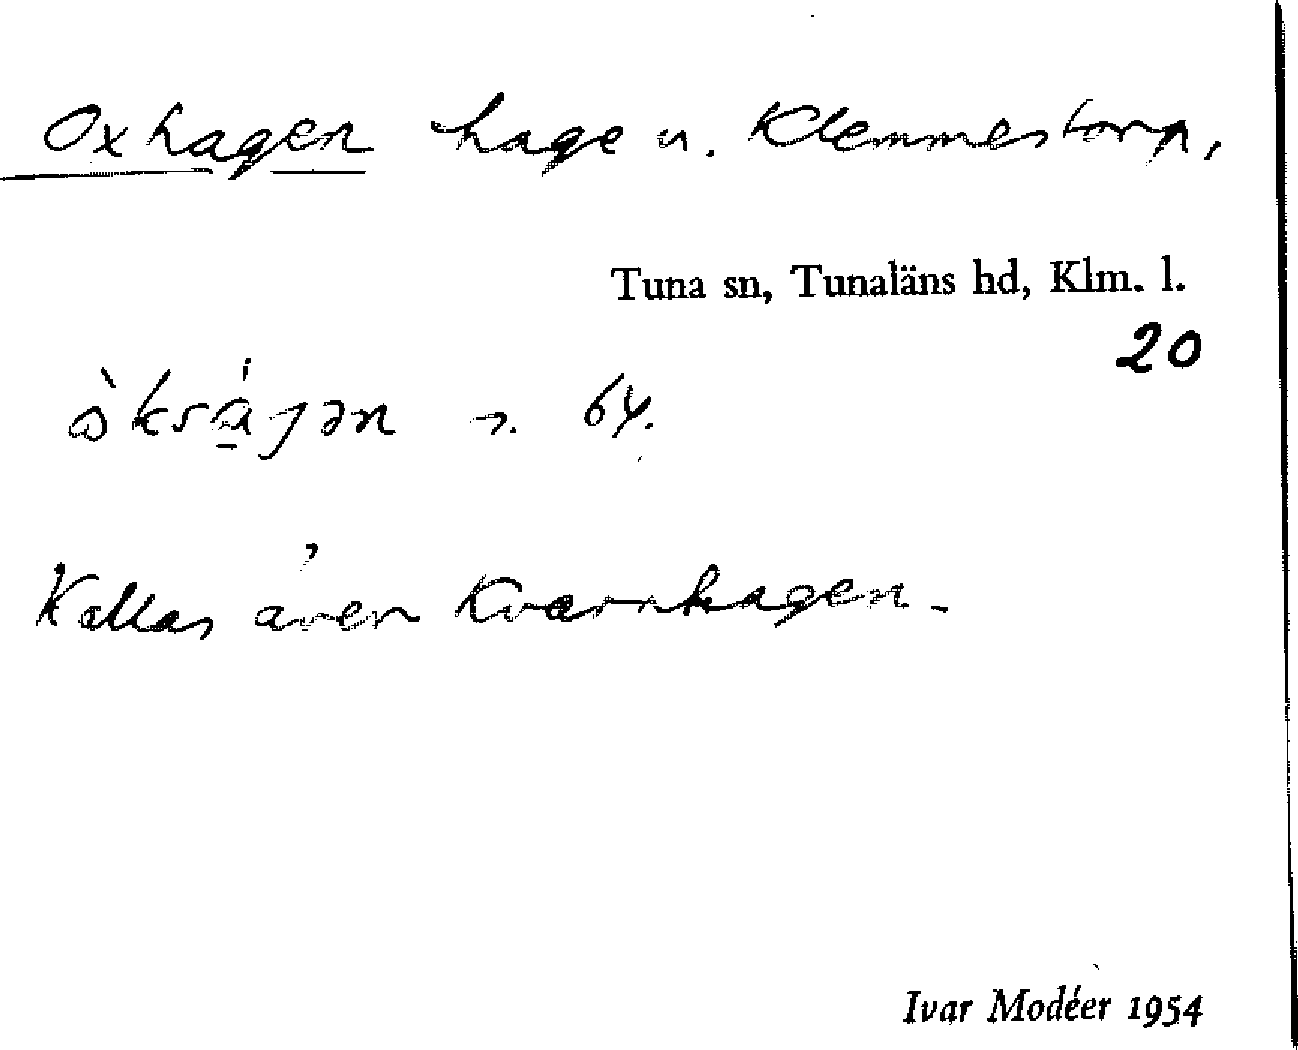 Oxhagen hage u. Klemmestorp,
Tuna sn, Tunaläns hd, Klm. l.
20
64.
Kallas även Kvarnhagen.
Ivar Modéer 1954